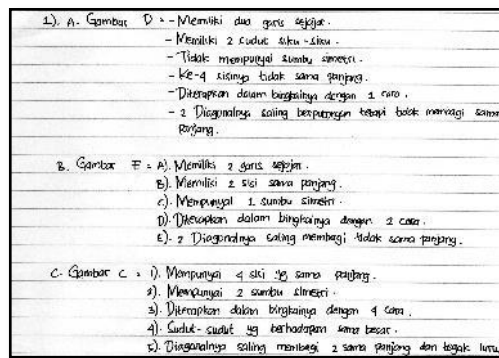 1). A. Gambar D = - Memiliki dua garis sejajar.
- Memiliki 2 sudut siku-siku.
- Tidak mempunyai sumbu simetri.
- Ke-4 sisinya tidak sama panjang.
- Diterapkan dalam bingkainya dengan 1 cara.
- 2 Diagonalnya saling berpotongan tetapi tidak membagi sama
panjang.
B. Gambar E = A). Memiliki 2 garis sejajar.
B). Memiliki 2 sisi sama panjang.
C). Mempunyai 1 sumbu simetri.
D). Diterapkan dalam bingkainya dengan 2 cara.
E). 2 Diagonalnya saling membagi tidak sama panjang.
C. Gambar C = 1). Mempunyai 4 sisi yg sama panjang.
2). Mempunyai 2 sumbu simetri.
3). Diterapkan dalam bingkainya dengan 4 cara.
4). Sudut-sudut yg berhadapan sama besar.
5). Diagonalnya saling membagi 2 sama panjang dan tegak lurus